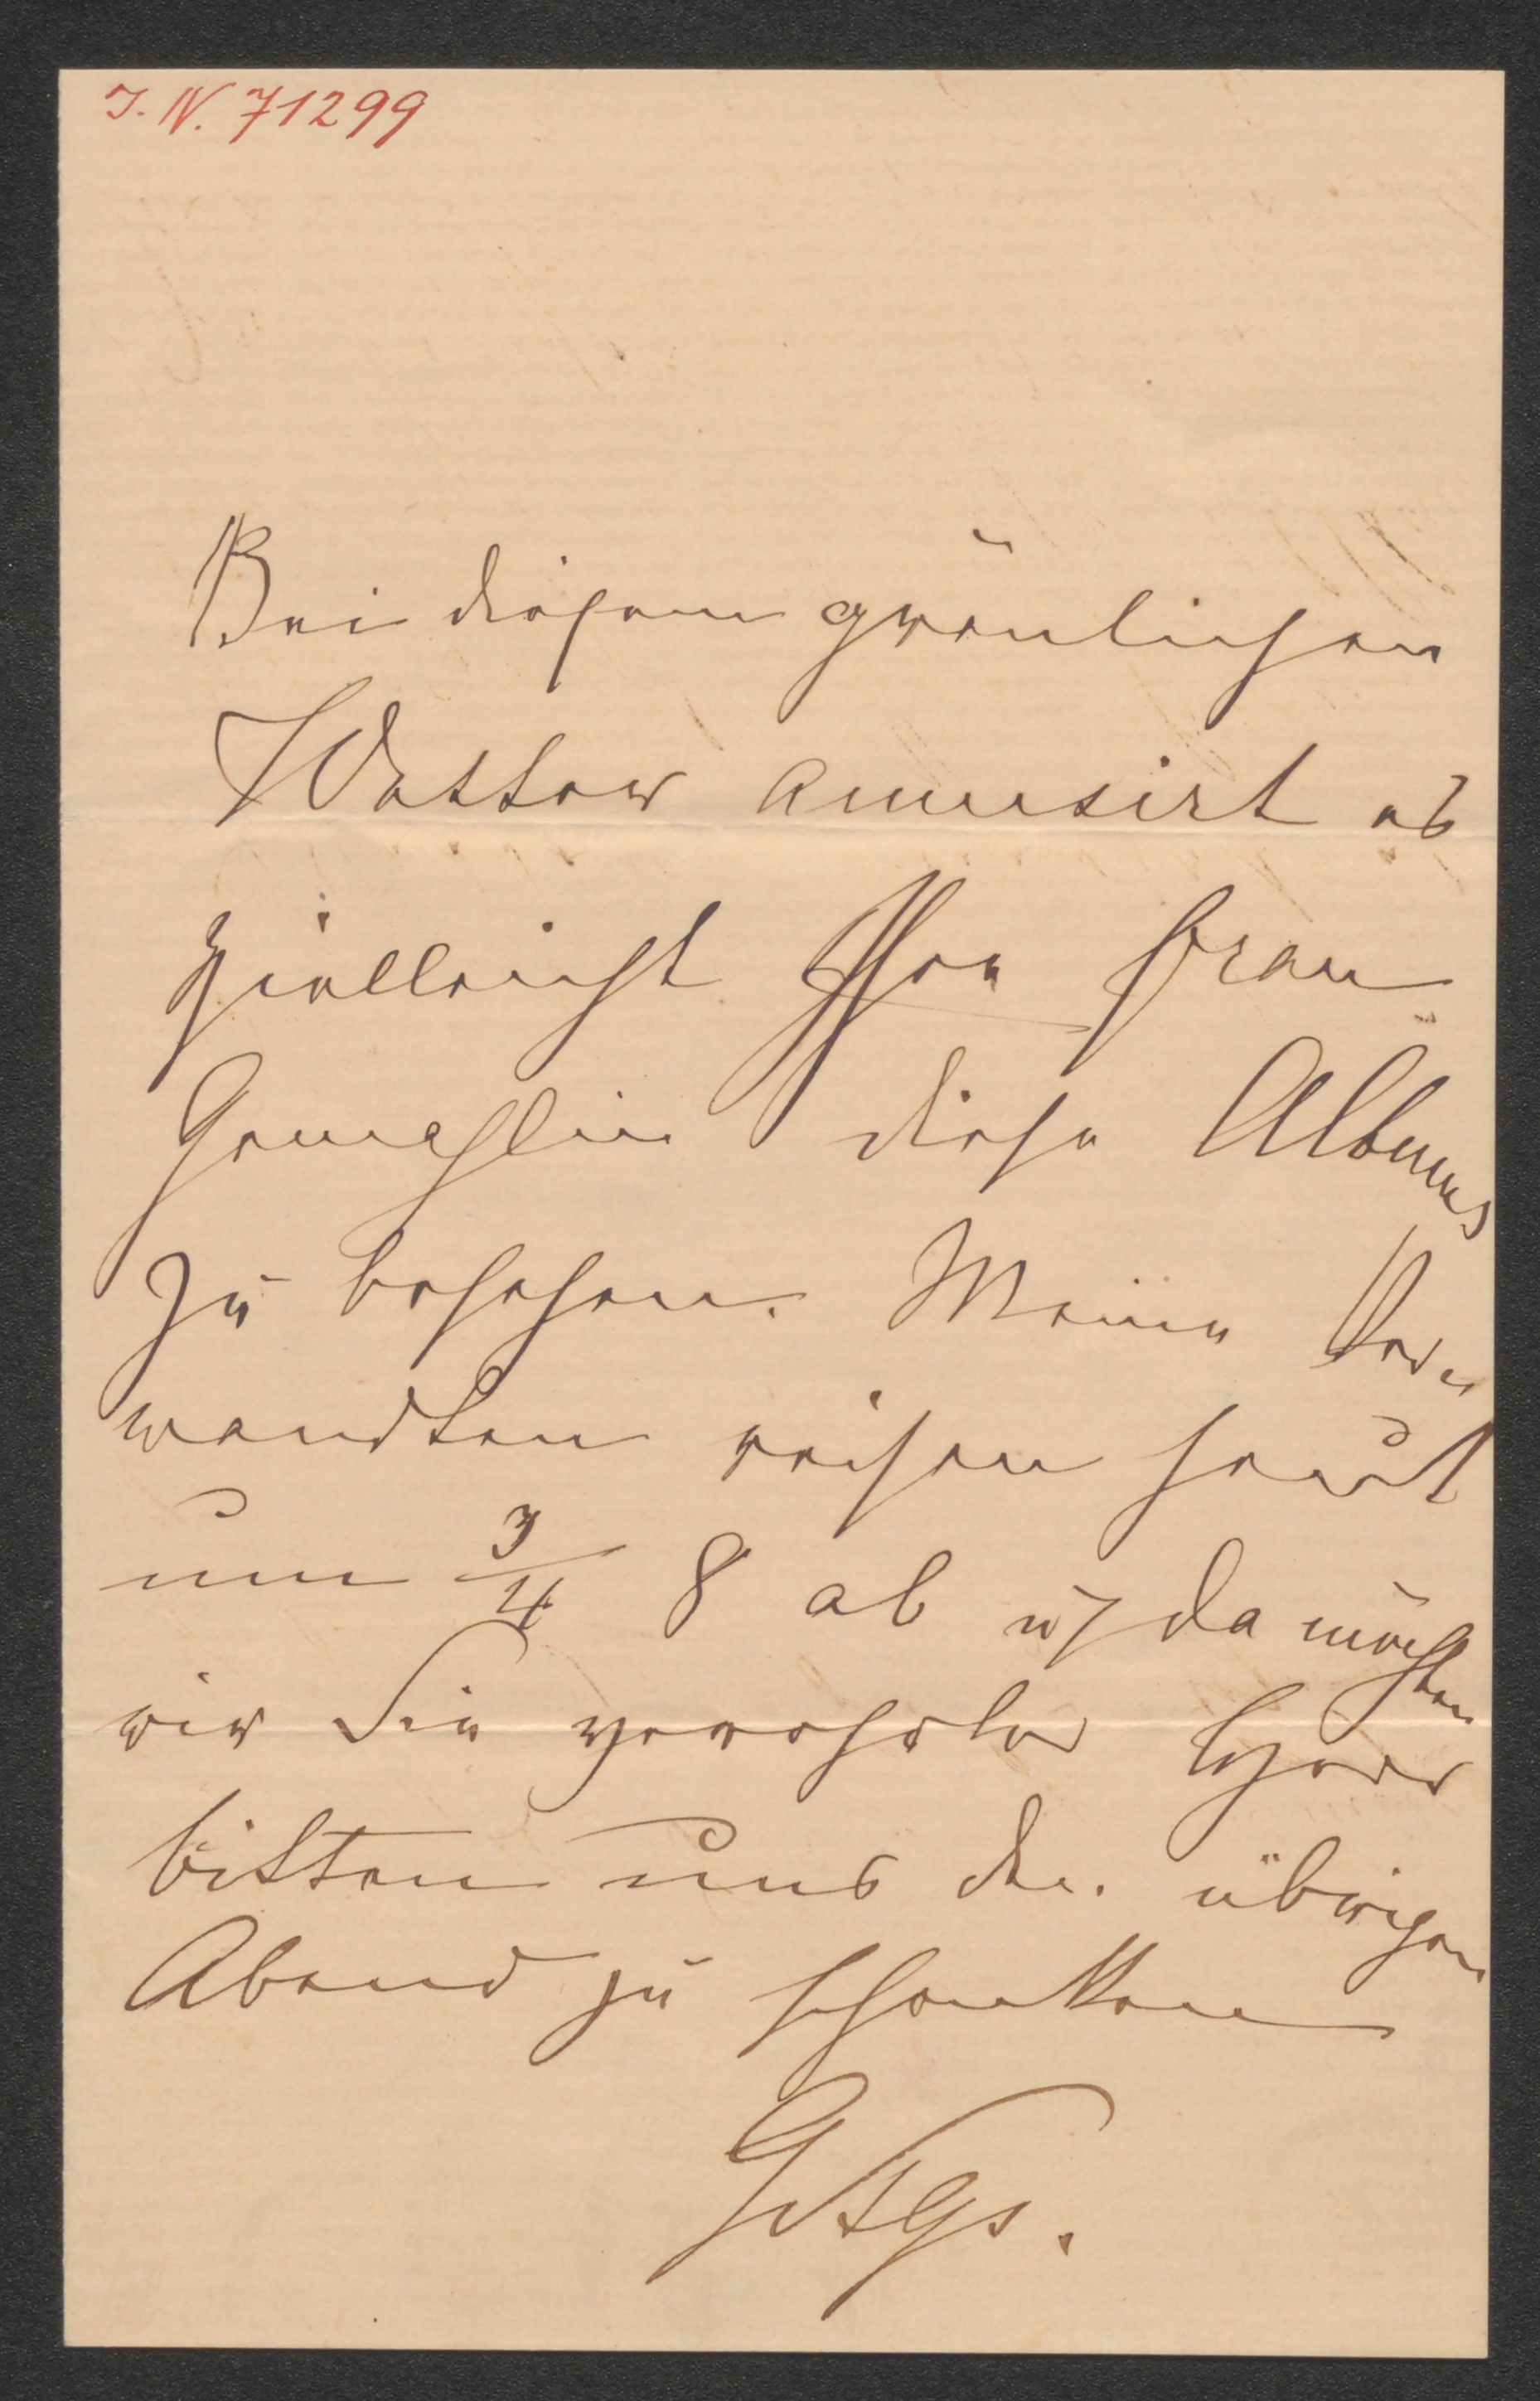 I. N. 71299
Bei diesem gräulichen
Wetter amusirt es
vielleicht Ihre Frau
Gemahlin diese Albums
zu besehen. Meine Ver-
wandten reisen heut
um 3/4 8 ab u da möchten
wir Sie verehrter Herr
bitten uns den übrigen
Abend zu schenken